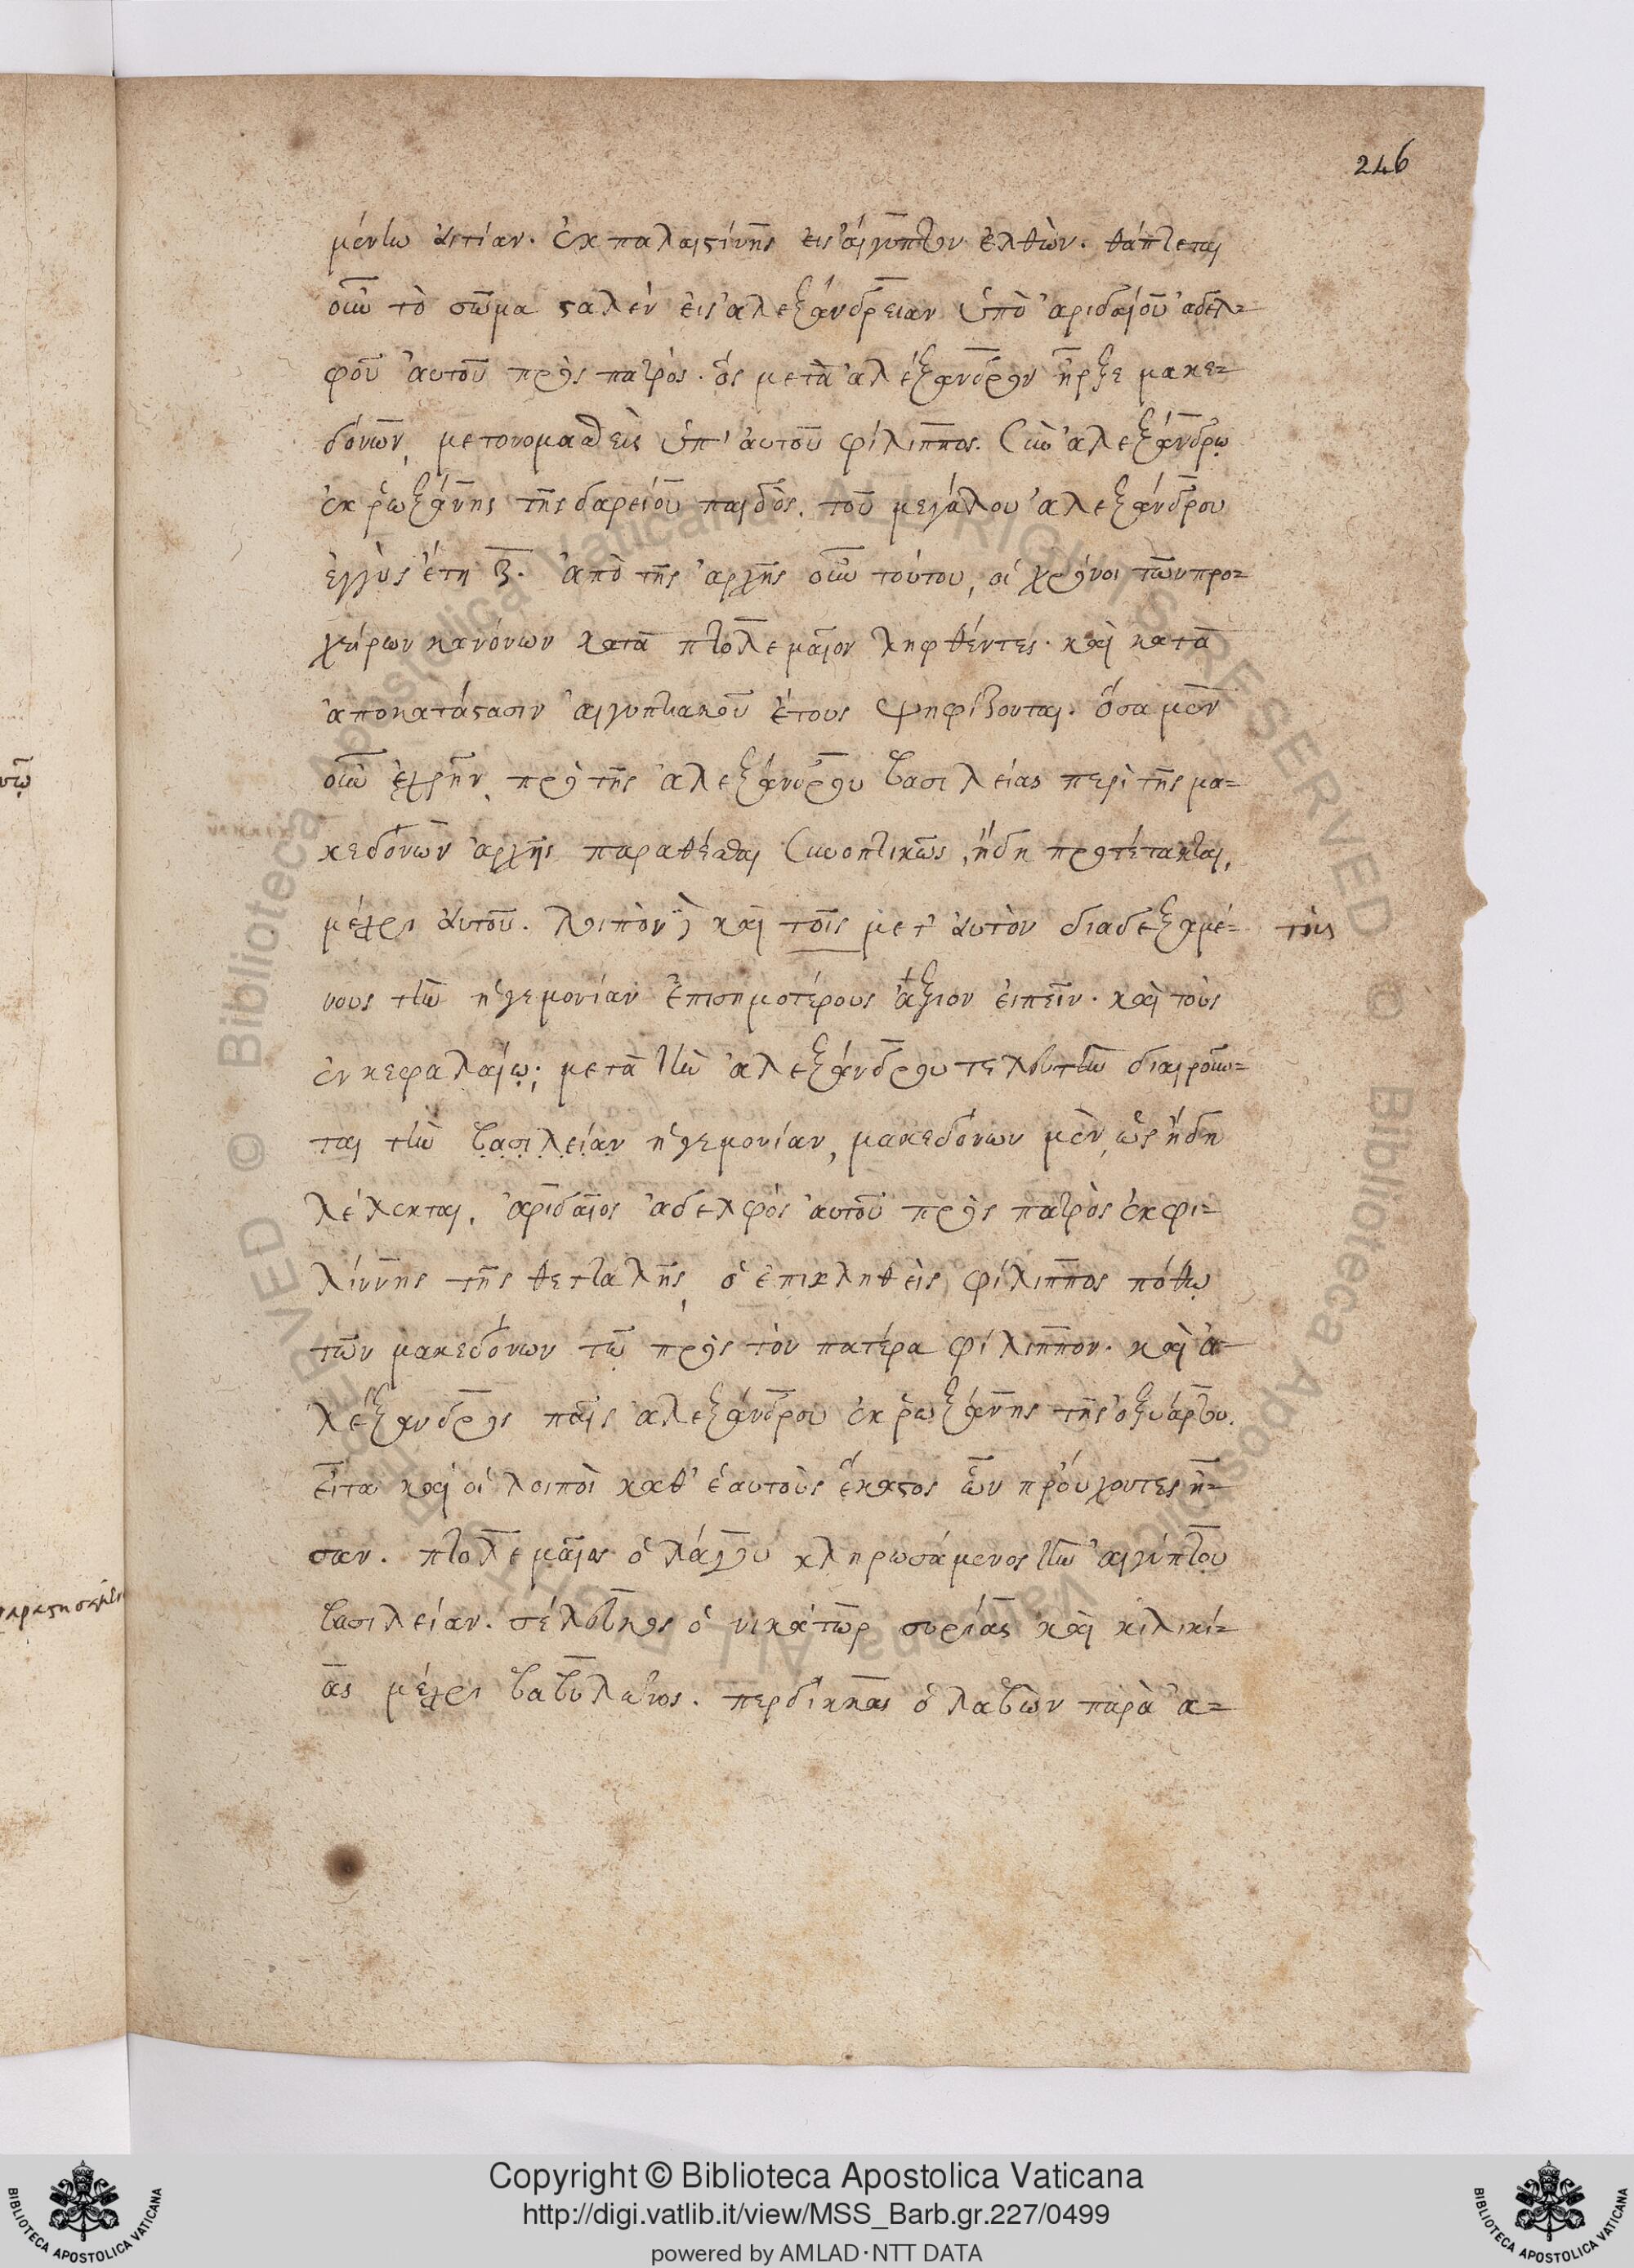 246
μένην αἰτίαν. ἐκ παλαιστίνης εἰς αἴγυπτον ἐλθών. θάπτεται
οὖν τὸ σῶμα σταλὲν εἰς ἀλεξάνδρειαν ὑπὸ ἀριδαίου ἀδελ=
φοῦ αὐτοῦ πρὸς πατρός. ὃς μετὰ ἀλέξανδρον ἦρξε μακε=
δόνων, μετονομασθεὶς ὑπ' αὐτοῦ φίλιππος. σὺν ἀλεξάνδρῳ
ἐκ ῥωξάνης τῆς δαρείου παιδὸς. τοῦ μεγάλου ἀλεξάνδρου
ἐγγὺς ἔτη ζ. ἀπὸ τῆς ἀρχῆς οὖν τούτου, οἱ χρόνοι τῶν προ=
χείρων κανόνων κατὰ πτολεμαῖον ληφθέντες. καὶ κατὰ
ἀποκατάστασιν αἰγυπτιακοῦ ἔτους ψηφίζονται. ὅσα μὲν
οὖν ἐχρῆν, πρὸ τῆς ἀλεξάνδρου βασιλείας περὶ τῆς μα=
κεδόνων ἀρχῆς παραθέσθαι συνοπτικῶς, ἤδη προτέτακται,
μέχρι αὐτοῦ. λοιπὸν καὶ τοῖς μετ' αὐτὸν διαδεξαμέ=
τοὺς
νους τὴν ἡγεμονίαν ἐπισημοτέρους ἄξιον εἰπεῖν. καὶ τοὺς
ἐν κεφαλαίῳ; μετὰ τὴν ἀλεξάνδρου τελευτὴν διαιροῦν=
ται τὴν βασιλείαν ἡγεμονίαν, μακεδόνων μὲν, ὡς ἤδη
λέλεκται, ἀριδαῖος ἀδελφὸς αὐτοῦ πρὸς πατρὸς ἐκ φι=
λίννης τῆς θετταλῆς, ὁ ἐπικληθεὶς φίλιππος πόθῳ
τῶν μακεδόνων τῷ πρὸς τὸν πατέρα φίλιππον. καὶ ἀ=
λέξανδρος παῖς ἀλεξάνδρου ἐκ ῥωξάνης τῆς ὀξυάρτου.
εἶτα καὶ οἱ λοιποὶ καθ' ἑαυτοὺς ἕκαστος ὧν προύχοντες ἦ=
σαν. πτολεμαῖος ὁ λάγου κληρωσάμενος τὴν αἰγύπτου
βασιλείαν. σέλευκος ὁ νικάτωρ συρίας καὶ κιλικί=
ας μέχρι βαβυλῶνος. περδίκκας ὁ λαβὼν παρὰ ἀ=
Copyright © Biblioteca Apostolica Vaticana
http://digi.vatlib.it/view/MSS_Barb.gr.227/0499
powered by AMLAD·NTT DATA
BIBLIOTECA APOSTOLICA VATICANA
BIBLIOTECA APOSTOLICA VATICANA